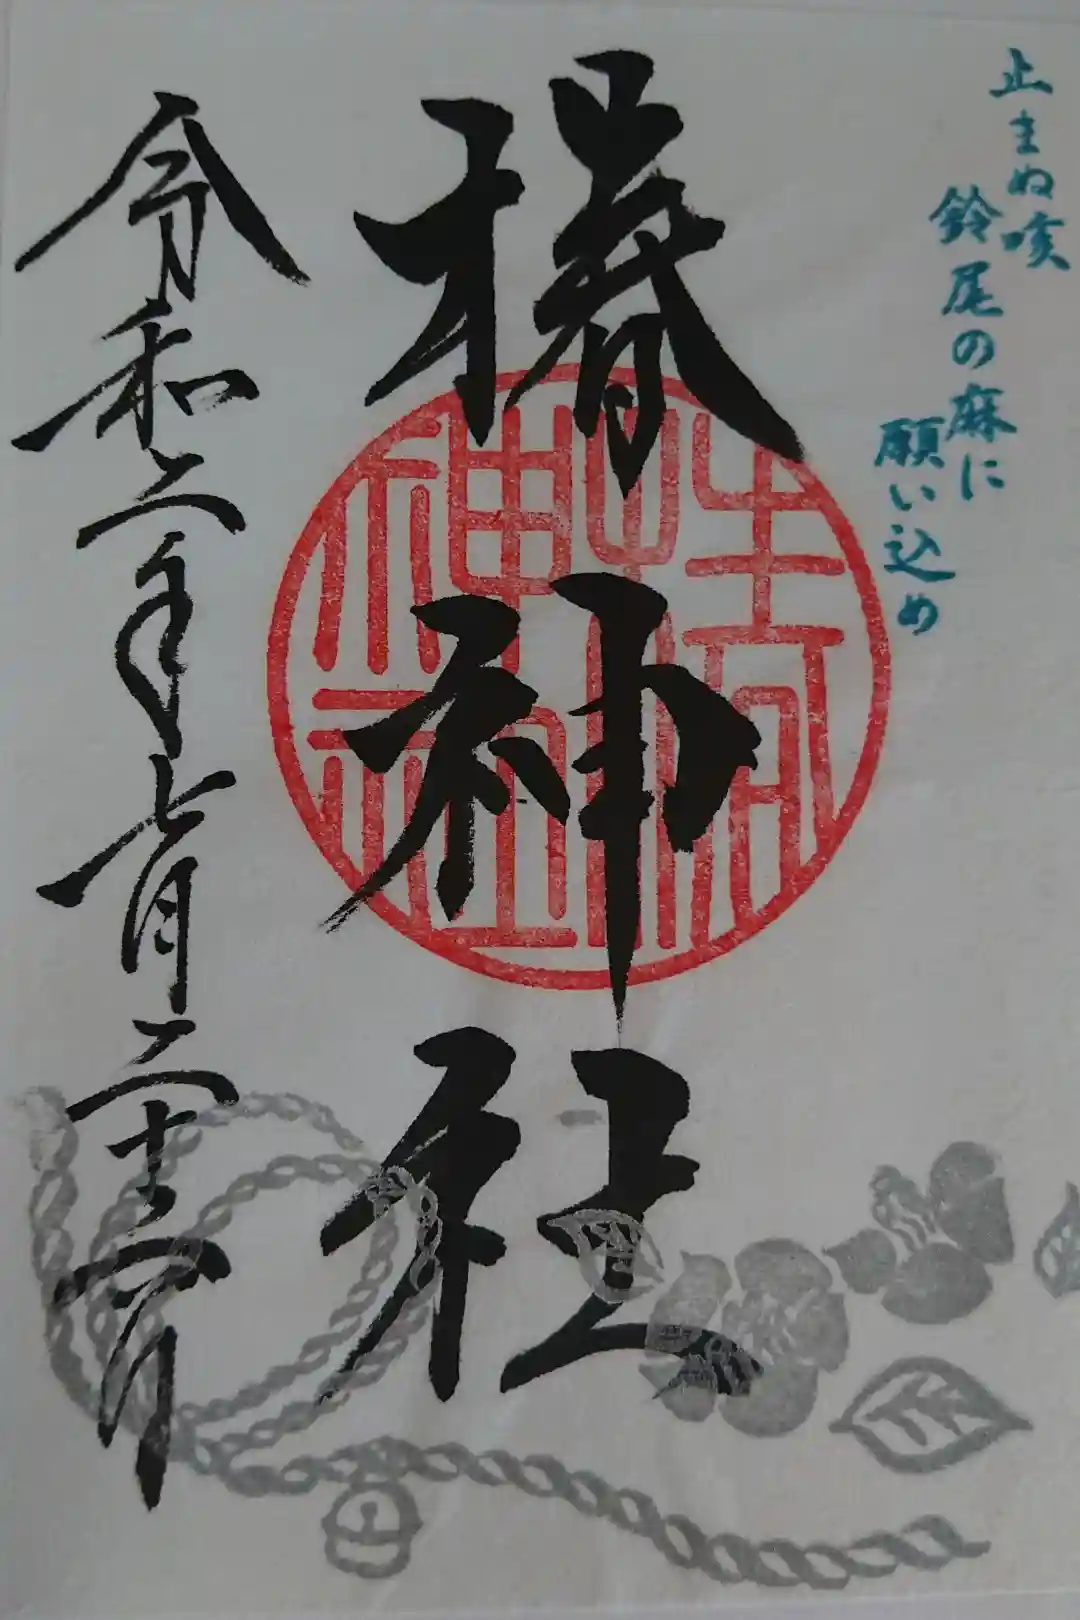 止まぬ咳
鈴尾の麻に
願い込め
椿神社
令和二年七月二十六日